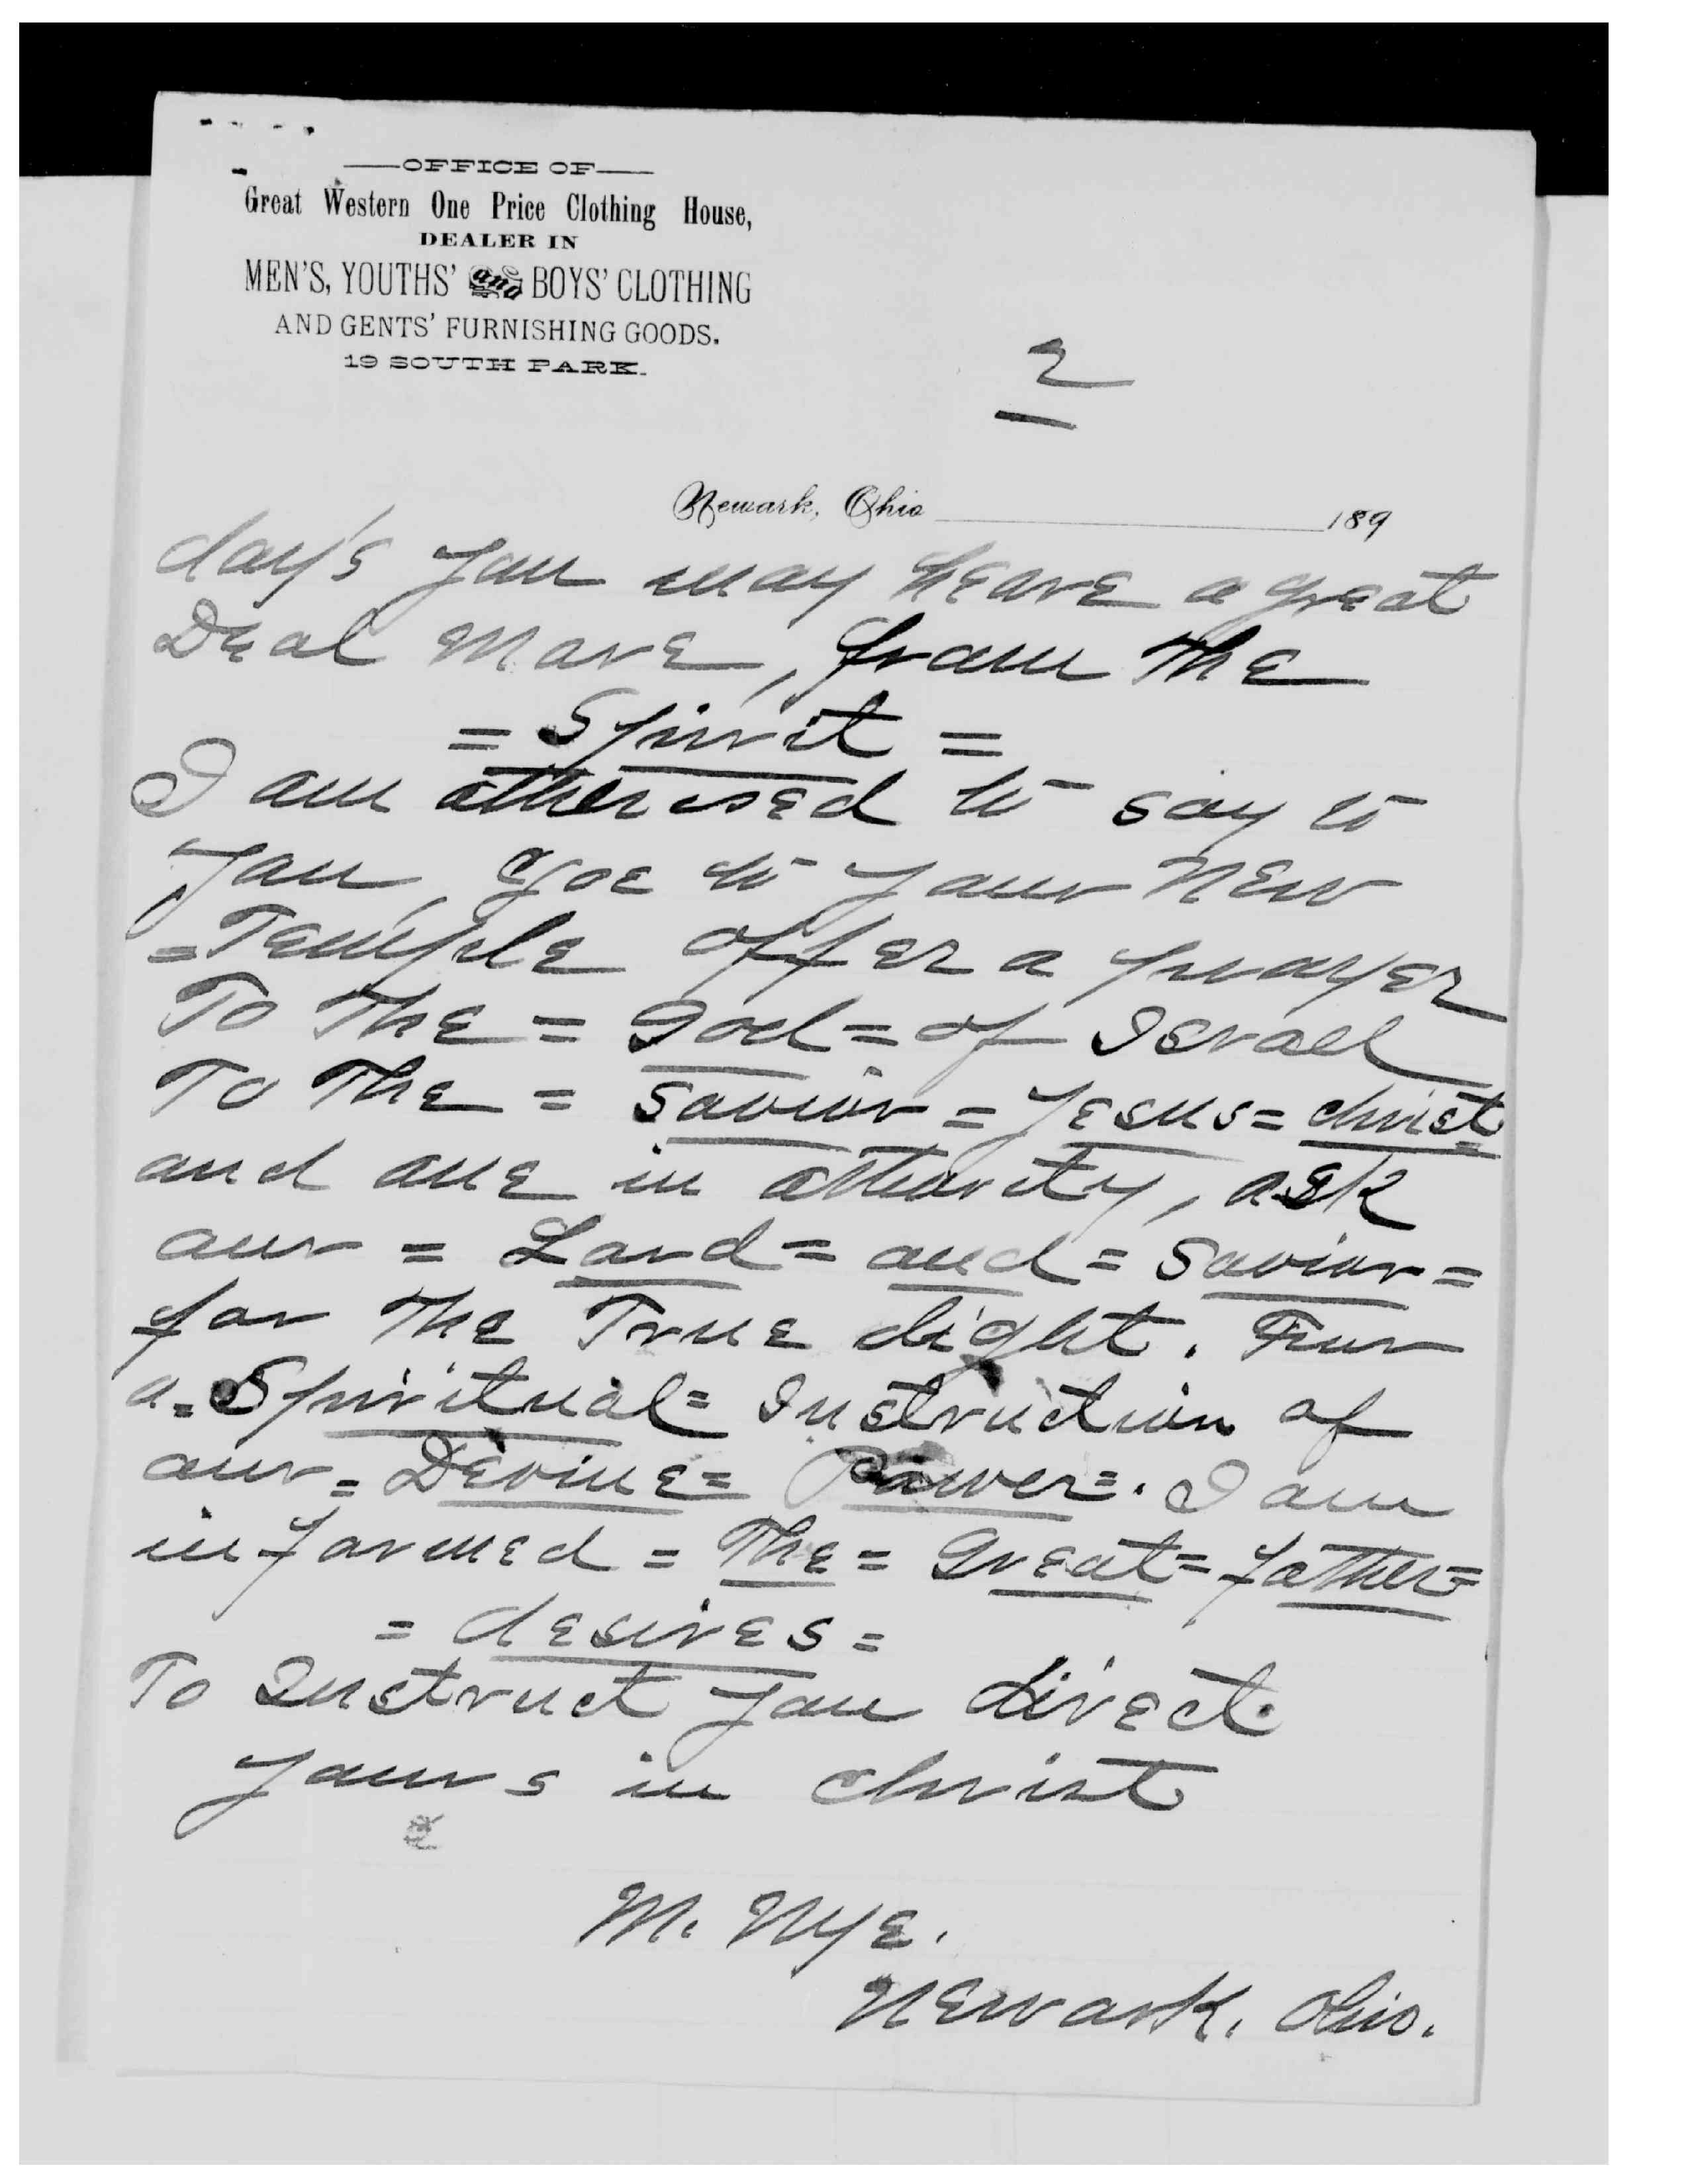 OFFICE OF
Great Western One Price Clothing House,
DEALER IN
MEN'S, YOUTHS' and BOYS' CLOTHING
AND GENTS' FURNISHING GOODS.
19 SOUTH PARK.
2
Newark, Ohio 189
day's you may heare a great
Deal More, from the
= Spirit =
I am atherised to say to
you, goe to your New
=Temple offer a prayer
To The = God = of Israel
To The = Savior = Jesus = christ
and one in athority, ask
our = Lord = and = Savior =
for The True light. For
a = Spiritual = Instruction of
our = Devine = Power =. I am
informed = The = Great = father =
= desires =
To Instruct you direct.
yours in christ
M. Nye.
Newark, Ohio.